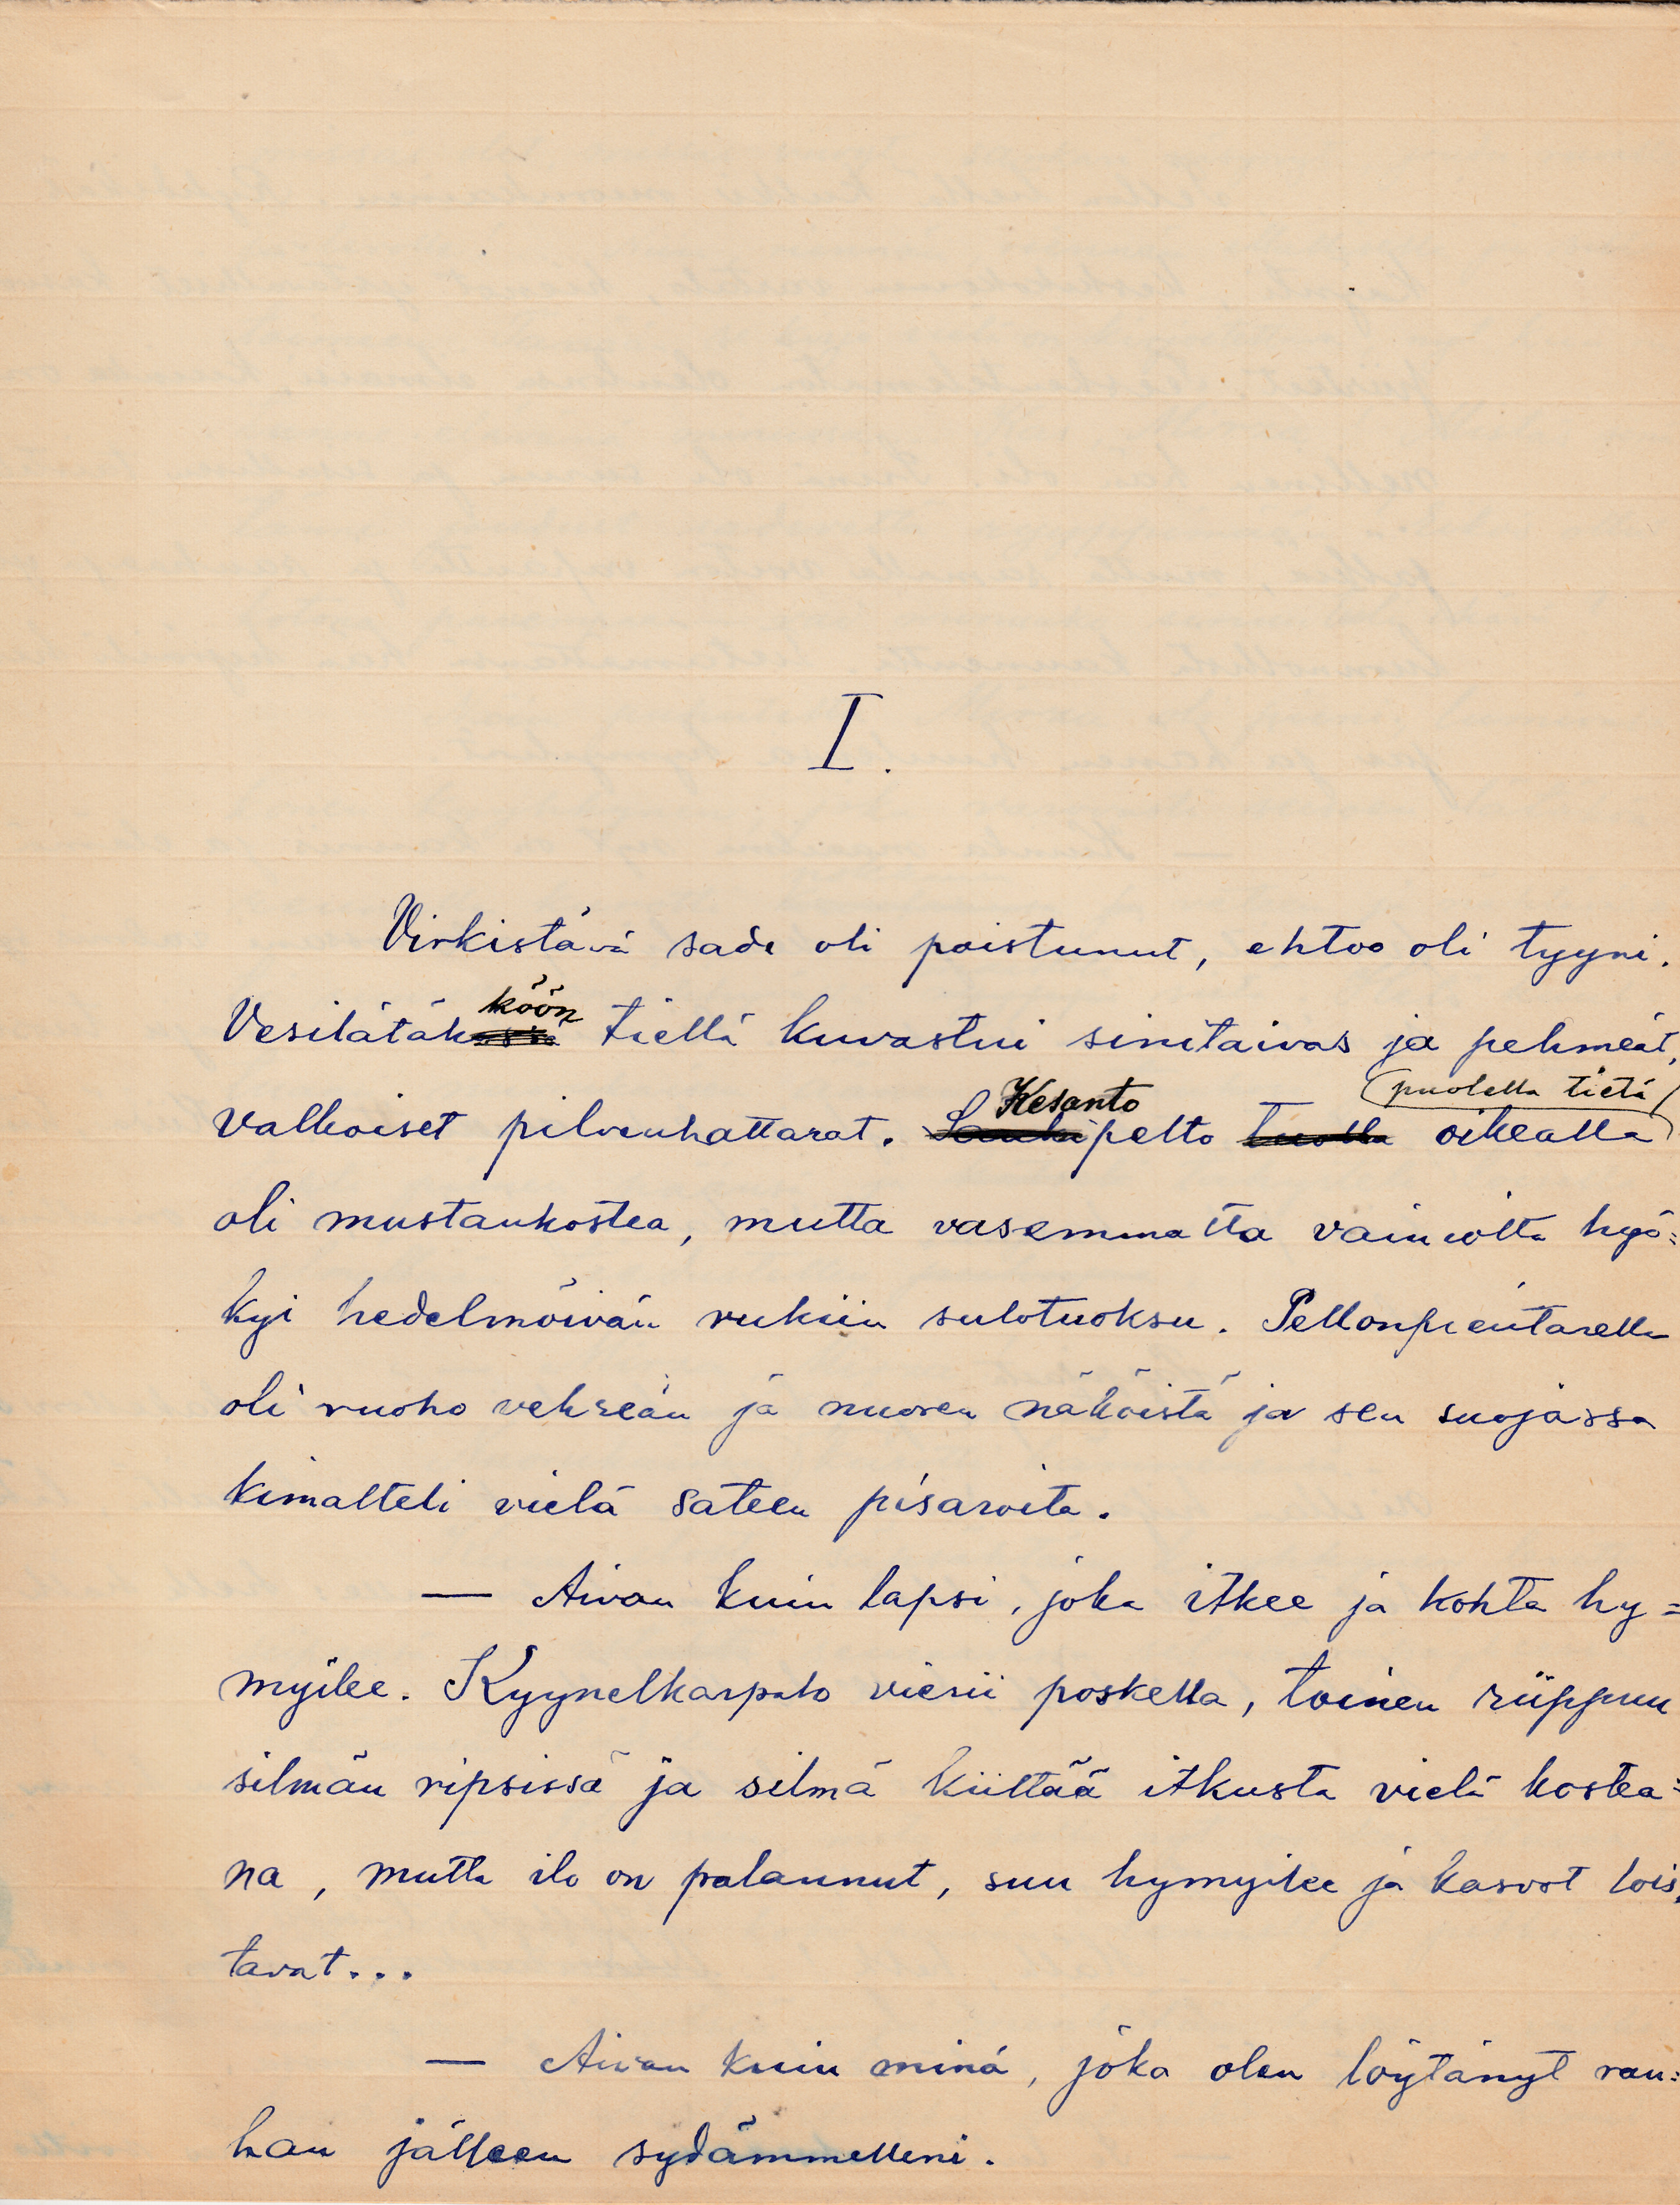 I.
Virkistävä sade oli poistunut, ehtoo oli tyyni.
köön
Vesilätäk tiellä kuvastui sinitaivas ja pehmeät,
Kesanto (puolella tietä)
valkoiset pilvenhattarat. pelto tuolla oikealla
oli mustankostea, mutta vasemmalta vainiolta hyö=
kyi hedelmöivän rukiin sulotuoksu. Pellonpientarella
oli ruoho vehreän ja nuoren näköistä ja sen suojassa
kimalteli vielä sateen pisaroita.
— Aivan kuin lapsi, joka itkee ja kohta hy=
myilee. Kyynelkarpalo vierii poskella, toinen riippuu
silmän ripsissä ja silmä kiiltää itkusta vielä kostea=
na, mutta ilo on palannut, suu hymyilee ja kasvot lois=
tavat...
— Aivan kuin minä, joka olen löytänyt rau=
han jälleen sydämmelleni.